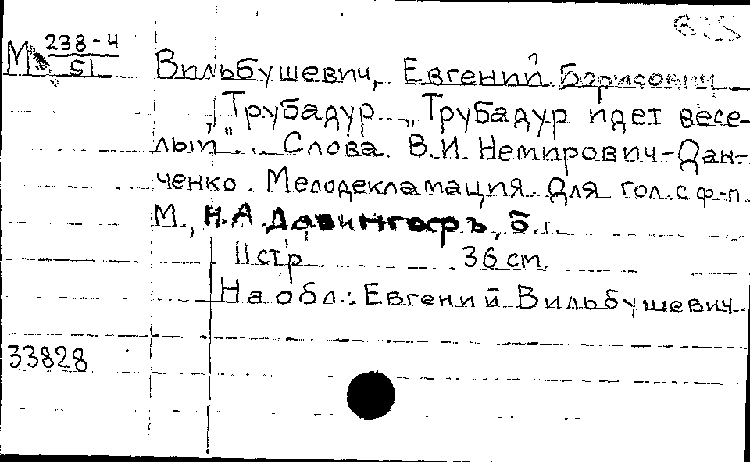 М 238-4
51
Вильбушевич, Евгений Борисович
Трубадур. „Трубадур идет весе-
лый". Слова В.И. Немирович-Дан-
ченко. Мелодекламация для гол. с ф-п.
М., Н.А. Давингофъ, б.г.
11 стр 36 cm.
На обл.: Евгений Вильбушевич
33828